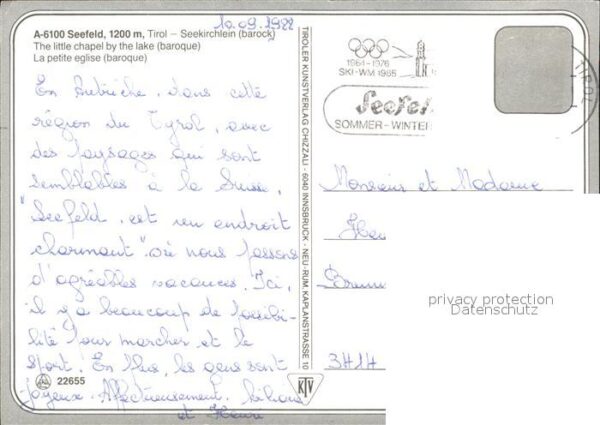 10.09.1988
A-6100 Seefeld, 1200 m, Tirol – Seekirchlein (barock)
The little chapel by the lake (baroque)
La petite eglise (baroque)
En Autriche, dans cette
région du Tyrol, avec
des paysages qui sont
semblables à la Suisse,
"Seefeld, est un endroit
charmant" où nous passons
d'agréables vacances. Ici,
il y a beaucoup de possibi-
lité pour marcher et le
sport. En plus, les gens sont
joyeux. Affectueusement.
et
22655
TIROLER KUNSTVERLAG CHIZZALI · 6040 INNSBRUCK · NEU-RUM KAPLANSTRASSE 10
KTV
1964-1976
SKI-WM 1985
Seefel
SOMMER-WINTER
TIROL
Monsieur et Madame
privacy protection
Datenschutz